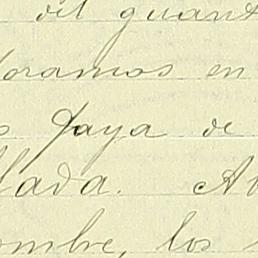 del guant
oramos en
s Jaya de
llada. A
ombre, los